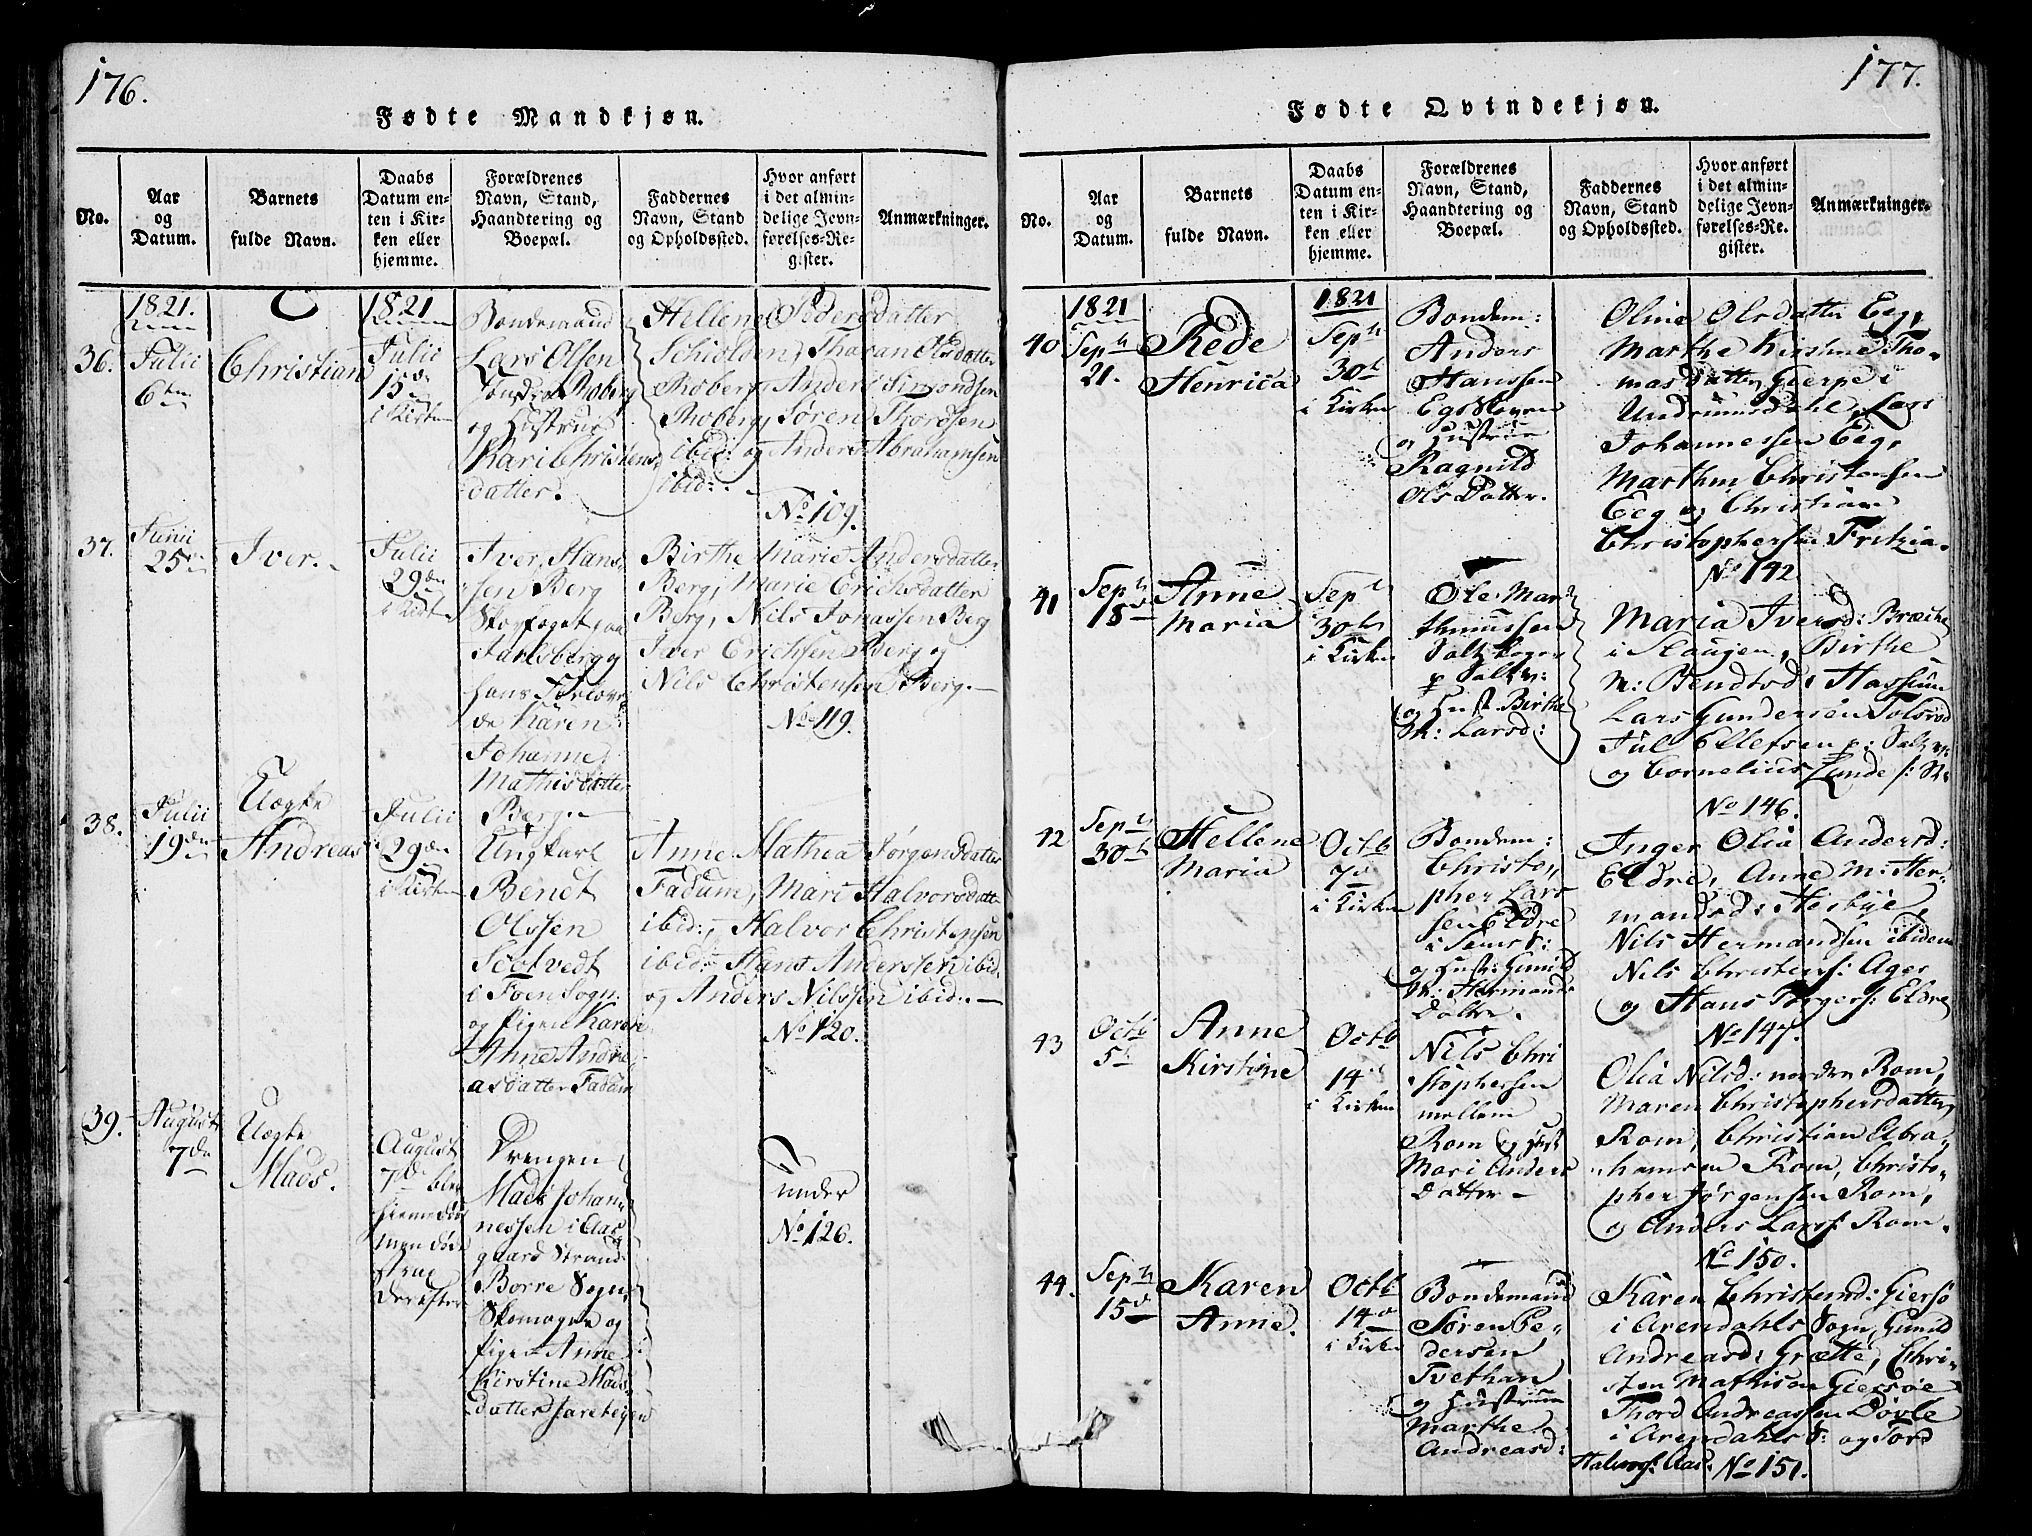 176.
Fødte Mandkjøn.
No.
Aar
og
Datum.
Barnets
fulde Navn.
Daabs
Datum en-
ten i Kir-
ken eller
hjemme.
Forældrenes
Navn, Stand,
Haandtering og
Boepæl.
Faddernes
Navn, Stand
og Opholdssted.
Hvor anført
i det almin-
delige Jevn-
førelses-Re-
gister.
Anmærkninger.
36.
1821.
Julii
6ten
Christian
1821
Julii
15de
i Kirken
Bondemand
Lars Olsen
Roberg
og Hustrue
Kari Christens
datter.
Hellene Pedersdatter
Schiolden, Tharan Olsdatter
Roberg, Anders Simondsen
Roberg, Søren Thordsen
ibid: og Anders Abrahamsen
ibid:
No 109.
37.
Junii
25
Iver.
Julii
29de
i Kirken
Iver Hans
sen Berg
Skogfoget paa
Jarlsberg og
hans Forlove
de Karen
Johanne
Mathisdatter
Berg
Birthe Marie Andersdatter
Berg, Marie Erichsdatter
Berg, Nils Jonassen Berg
Iver Erichsen Berg og
Nils Christensen Berg.
No 119.
38.
Julii
19de
Uægte
Andreas
Julii
29de
i Kirken
Ungkarl
Bendt
Olssen
Scolvedt
i Foen Sogn
og Pigen Karen
Anne Andre
asdatter Fadum
Anne Mathea Jørgensdatter
Fadum, Mari Halvorsdatter
ibid:, Halvor Christensen
ibid: Hans Anderssen ibid.
og Anders Nilssen ibid:
No 120.
39.
August
7de
Uægte
Mads.
August
7de blev
hiemedøbt
men døde
strax
derefter
Drengen
Mads Johan
nessen i
gaard Strand
Borre Sogn
Skomager og
Pigen Anne
Kirstine Mads
datter Jareteigen
under
No 126.
177.
Fødte Qvindekjøn.
No.
Aar
og
Datum.
Barnets
fulde Navn.
Daabs
Datum en-
ten i Kir-
ken eller
hjemme.
Forældrenes
Navn, Stand,
Haandtering og
Boepæl.
Faddernes
Navn, Stand
og Opholdssted.
Hvor anført
i det almin-
delige Jevn-
førelses-Re-
gister.
Anmærkninger.
40
1821
Septb
21.
Rede
Henrica
1821
Septb
30te
i Kirken
Bondem:
Anders
Hanssen
Egeskoven
og Hustrue
Ragnild
Ols Datter.
Oline Olsdatter Eeg,
Marthe Kirstine Tho-
mas Datter, Gierpe i
Undrumsdahl, Lars
Johannessen Eeg,
Marthin Christensen
Eeg og Christian
Christophersen Fritzia.
No 142
41
Septb
18de
Anne
Maria
Septb
30te
i Kirken
Ole Mar
thinussen
Saltkoger
p Saltv:
og Hust Birthe
M: Larsd:
Maria Iversd: Bræche
i Slaugen, Birthe
M: Bendtsd: Hassum
Lars Gundersen Tolsrød
Jul Ellefsen p: Saltv:
og Cornelius Lunde
No 146.
42
Septb
30te
Hellene
Maria
Octb
7de
i Kirken
Bondem:
Christo,,
pher Lars
sen Eldre
i Sems S:
og Hust: Gunild
M: Hermands
Datter.
Inger Olia Andersd:
Eldre, Anne M: Her-
mandsd: Hesbye,
Nils Hermandsen ibidem
Nils Christians: Ager
og Hans Torgers: Eldre
No 147.
43
Octb
5te
Anne
Kirstine
Octb
14de
i Kirken
Nils Chri
stophersen
mellem
Rom og Hust
Mari Anders
Datter
Olia Nilsd: nordre Rom,
Maren Christophersdatter,
Rom, Christian Abra-
hamsen Rom, Christo-
pher Jørgensen Rom,
og Anders Larss: Rom.
No 150.
44.
Septb
15de
Karen
Anne.
Octb
14de
i Kirken
Bondemand
Søren Pe-
dersen
Tvethan
og Hustrue
Marthe
Andreasd:
Karen Christensd: Giersø
i Arendahls Sogn, Gunild
Andreasd: Grætte, Chri-
sten Mathisen Giersøe
Thord Andreassen Døvle
i Arendahls S: og Tord
Halvors: Aas. No 151.